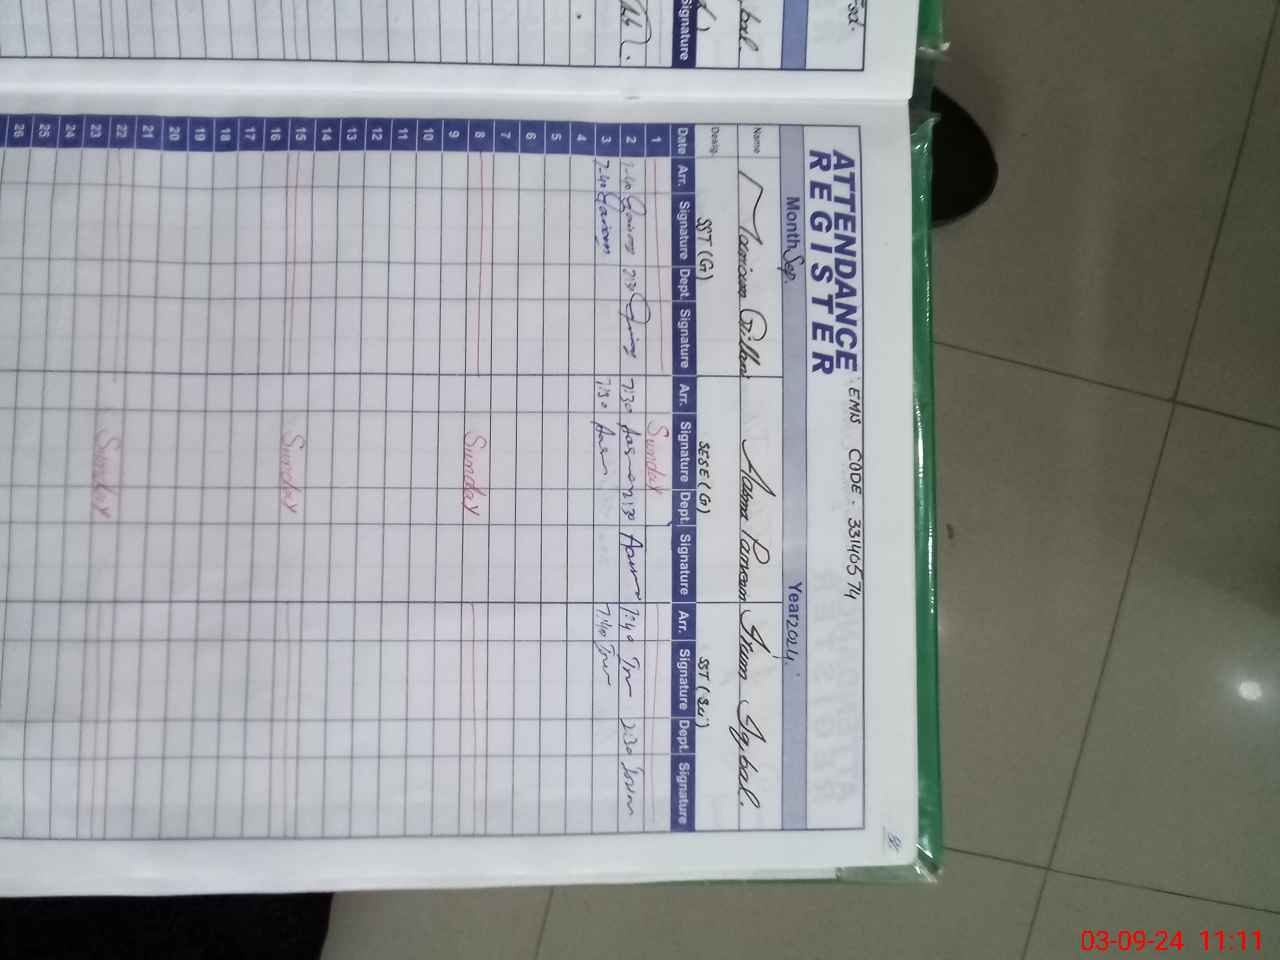 ATTENDANCE REGISTER
EMIS CODE - 33140574
Month Sep. Year 2024
Name Mariam Gillani Asma Parveen Irum Iqbal.
Desig. SST (G) SESE (G) SST (Sci)
Date Arr. Signature Dept. Signature Arr. Signature Dept. Signature Arr. Signature Dept. Signature
1 Sunday
2 7-40 2:30 7:30 2:30 7:40 2:30 Irum
3 7-40 Mariam 7:30 7:40
4
5
6
7
8 Sunday
9
10
11
12
13
14
15 Sunday
16
17
18
19
20
21
22 Sunday
23
24
25
26
Signature
03-09-24 11:11